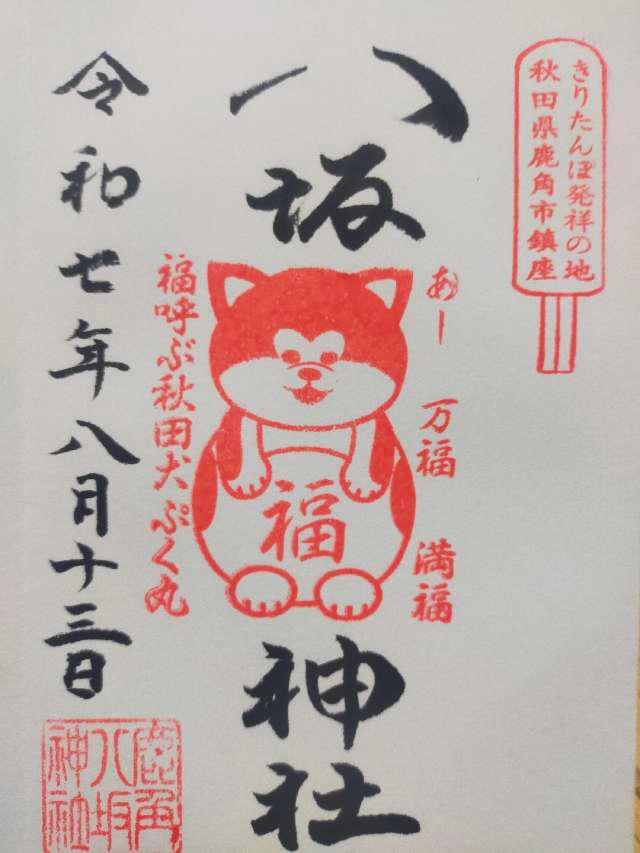 きりたんぽ発祥の地
秋田県鹿角市鎮座
八坂神社
あー 万福 満福
福
福呼ぶ秋田犬ぷく丸
令和七年八月十三日
鹿角
八坂
神社